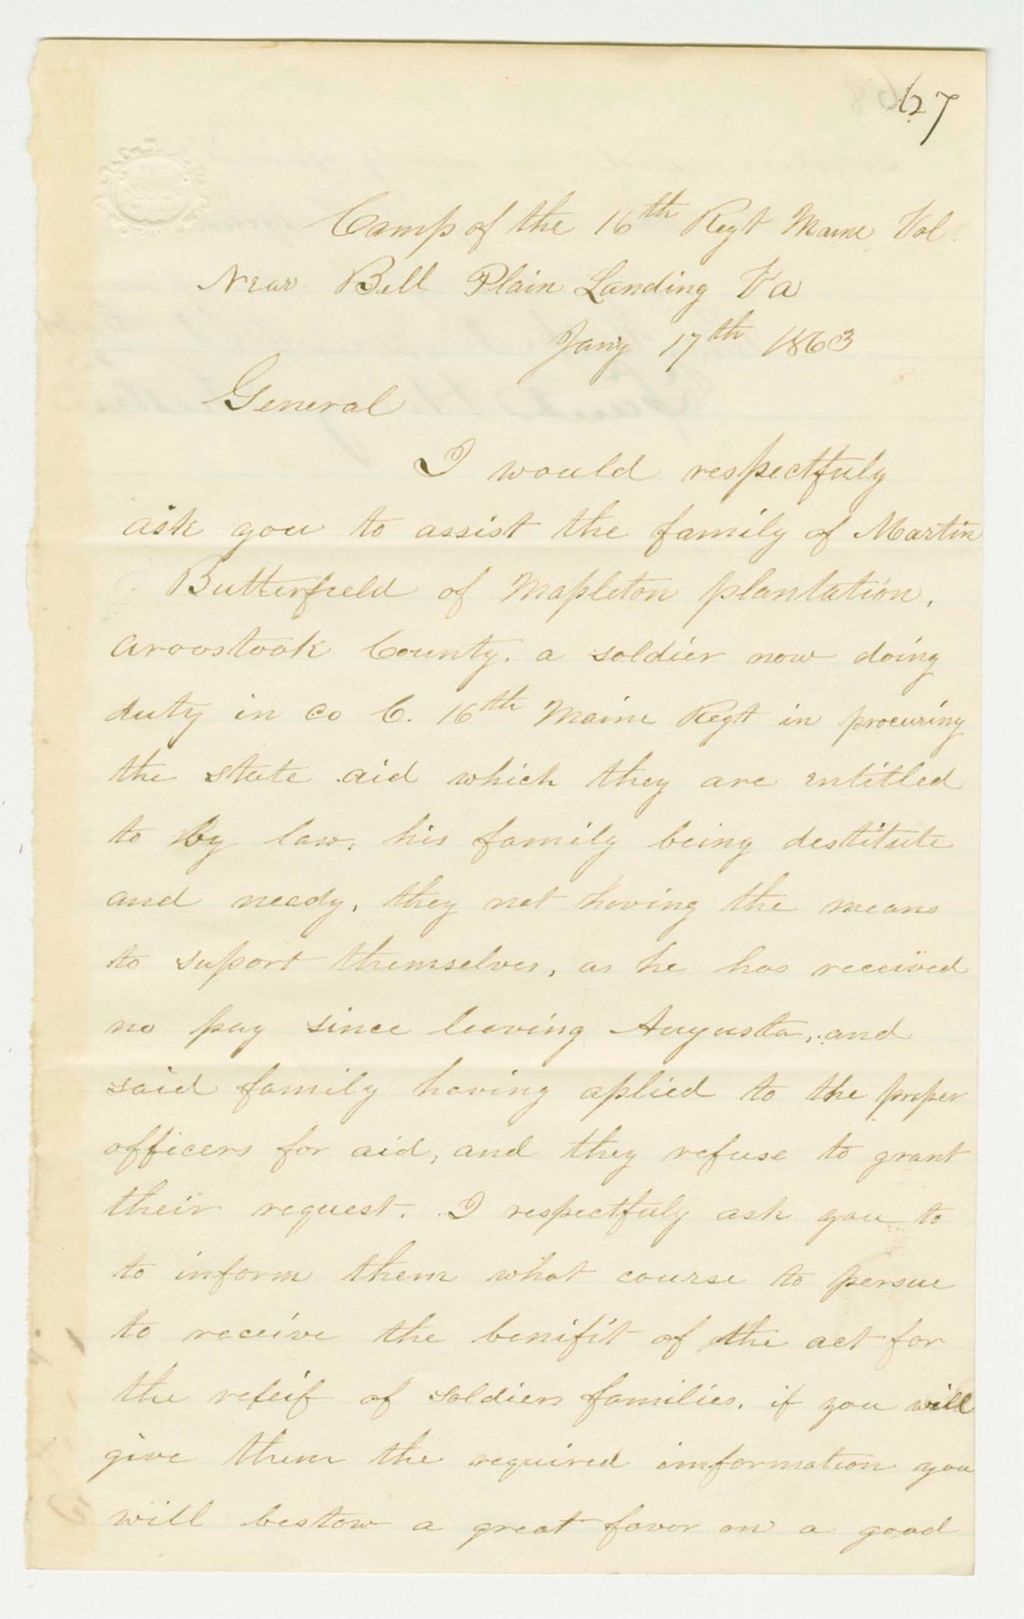 627
Camp of the 16th Regt Maine Vol.
Near Bell Plain Landing Va
Jany 17th 1863
General
I would respectfuly
ask you to assist the family of Martin
Butterfield of Mapleton plantation,
Aroostook County. a soldier now doing
duty in Co C. 16th Maine Regt in procuring
the state aid which they are entitled
to by law. his family being destitute
and needy, they not having the means
to suport themselves, as he has received
no pay since leeving Augusta, and
said family having aplied to the proper
officers for aid, and they refuse to grant
their request. I respectfuly ask you to
to inform them what course to persue
to receive the benifit of the act for
the releif of soldiers families. if you will
give them the required imformation you
will bestow a great favor on a good